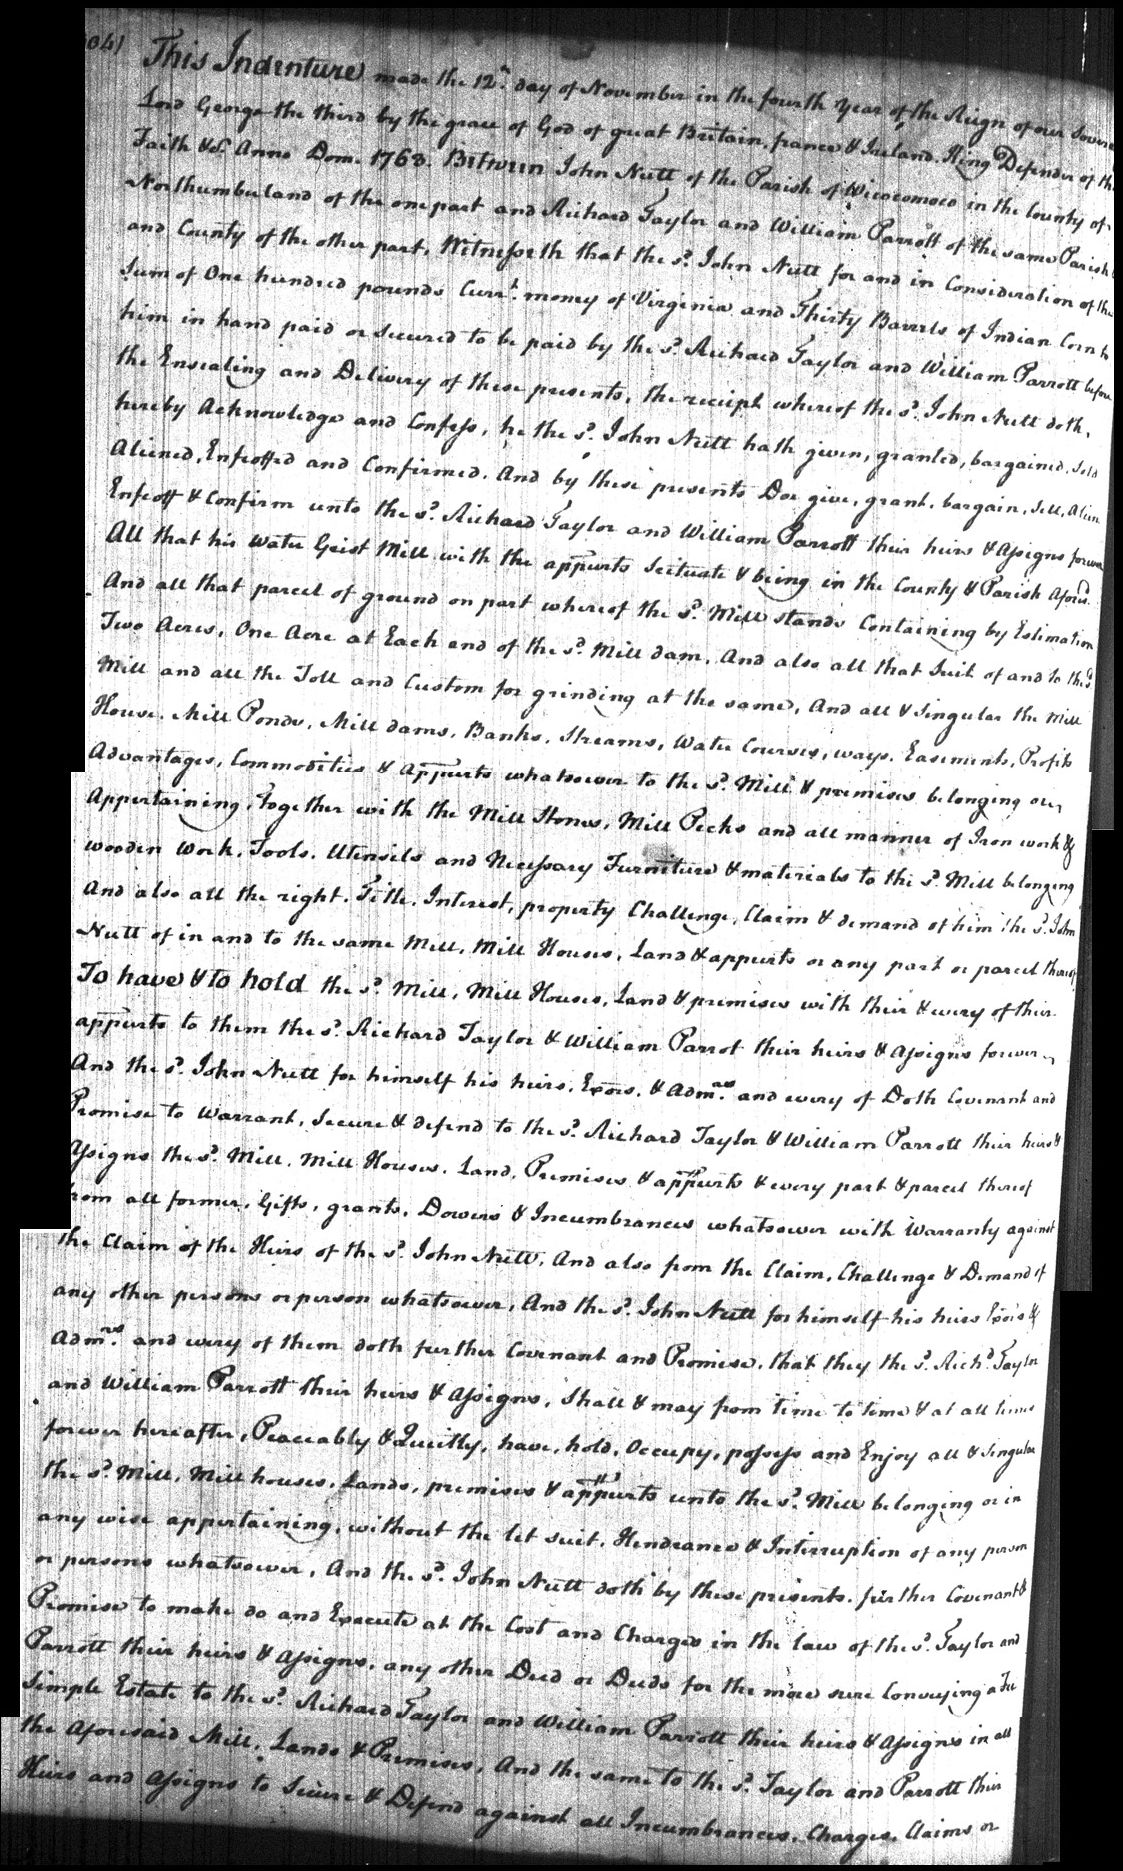 041
This Indenture made the 12th day of November in the fourth year of the Reign of our Sovere
Lord George the third by the grace of God of great Britain, france & Ireland, King Defender of the
Faith &c. Anno Dom. 1763. Between John Nutt of the Parish of Wicocomoco in the County of
Northumberland of the one part and Richard Taylor and William Parrott of the same Parish
and County of the other part, Witnesseth that the sd. John Nutt for and in Consideration of the
Sum of One hundred pounds Currt. money of Virginia and Thirty Barrels of Indian Corn to
him in hand paid or secured to be paid by the sd. Richard Taylor and William Parrott before
the Ensealing and Delivery of these presents, the receipt whereof the sd. John Nutt doth
hereby Acknowledge and Confess, he the sd. John Nutt hath given, granted, bargained, sold
Aliened, Enfeoffed and Confirmed. And by these presents Doe give, grant, bargain, sell, alien
Enfeoff & Confirm unto the sd. Richard Taylor and William Parrott their heirs & Assigns forever
All that his Water Grist Mill with the appurts Scituate & being in the County & Parish aforesd.
And all that parcel of ground on part whereof the sd. Mill stands Containing by Estimation
Two Acres, One Acre at Each end of the sd. Mill dam, And also all that Suit of and to the sd.
Mill and all the Toll and Custom for grinding at the same, And all & Singular the Mill
House, Mill Ponds, Mill dams, Banks, Streams, Water Courses, ways, Easements, Profits
Advantages, Commodities & Appurts whatsoever to the sd. Mill & premises belonging or
Appertaining, Together with the Mill Stones, Mill Pecks and all manner of Iron work &
wooden Work, Tools, Utensils and Necessary Furniture & materials to the sd. Mill belonging
And also all the right, Title, Interest, property Challenge, Claim & demand of him the sd. John
Nutt of in and to the same Mill, Mill Houses, Land & appurts or any part or parcel thereof
To have & to hold the sd. Mill, Mill Houses, Land & premises with their & every of their
appurts to them the sd. Richard Taylor & William Parrot their heirs & Assigns forever
And the sd. John Nutt for himself his heirs, Exors, & Admrs. and every of Doth Covenant and
Promise to Warrant, Secure & defend to the sd. Richard Taylor & William Parrott their heirs &
Assigns the sd. Mill, Mill Houses, Land, Premises & appurts & every part & parcel thereof
from all former, Gifts, grants, Dowers & Incumbrances whatsoever with Warranty against
the Claim of the Heirs of the sd. John Nutt, And also from the Claim, Challenge & Demand of
any other persons or person whatsoever, And the sd. John Nutt for himself his heirs Exors &
Admrs. and every of them doth further Covenant and Promise, that they the sd. Richd. Taylor
and William Parrott their heirs & Assigns, shall & may from time to time & at all times
forever hereafter, Peaceably & Quietly, have, hold, Occupy, possess and Enjoy all & singular
the sd. Mill, Mill houses, Lands, premises & appurts unto the sd. Mill belonging or in
any wise appertaining, without the let suit, Hendrance & Interruption of any person
or persons whatsoever, And the sd. John Nutt doth by these presents, further Covenant &
Promise to make do and Execute at the Cost and Charges in the law of the sd. Taylor and
Parrott their heirs & assigns, any other Deed or Deeds for the more sure Conveying a Fee
Simple Estate to the sd. Richard Taylor and William Parrott their heirs & assigns in all
the aforesaid Mill, Lands & Premises, And the same to the sd. Taylor and Parrott their
Heirs and Assigns to Secure & Defend against all Incumbrances, Charges, Claims or